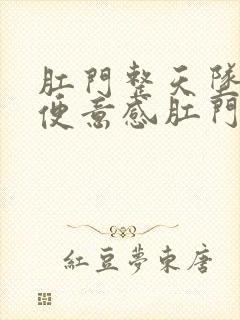 肛門整天墜
便意感肛門
紅豆夢東唐